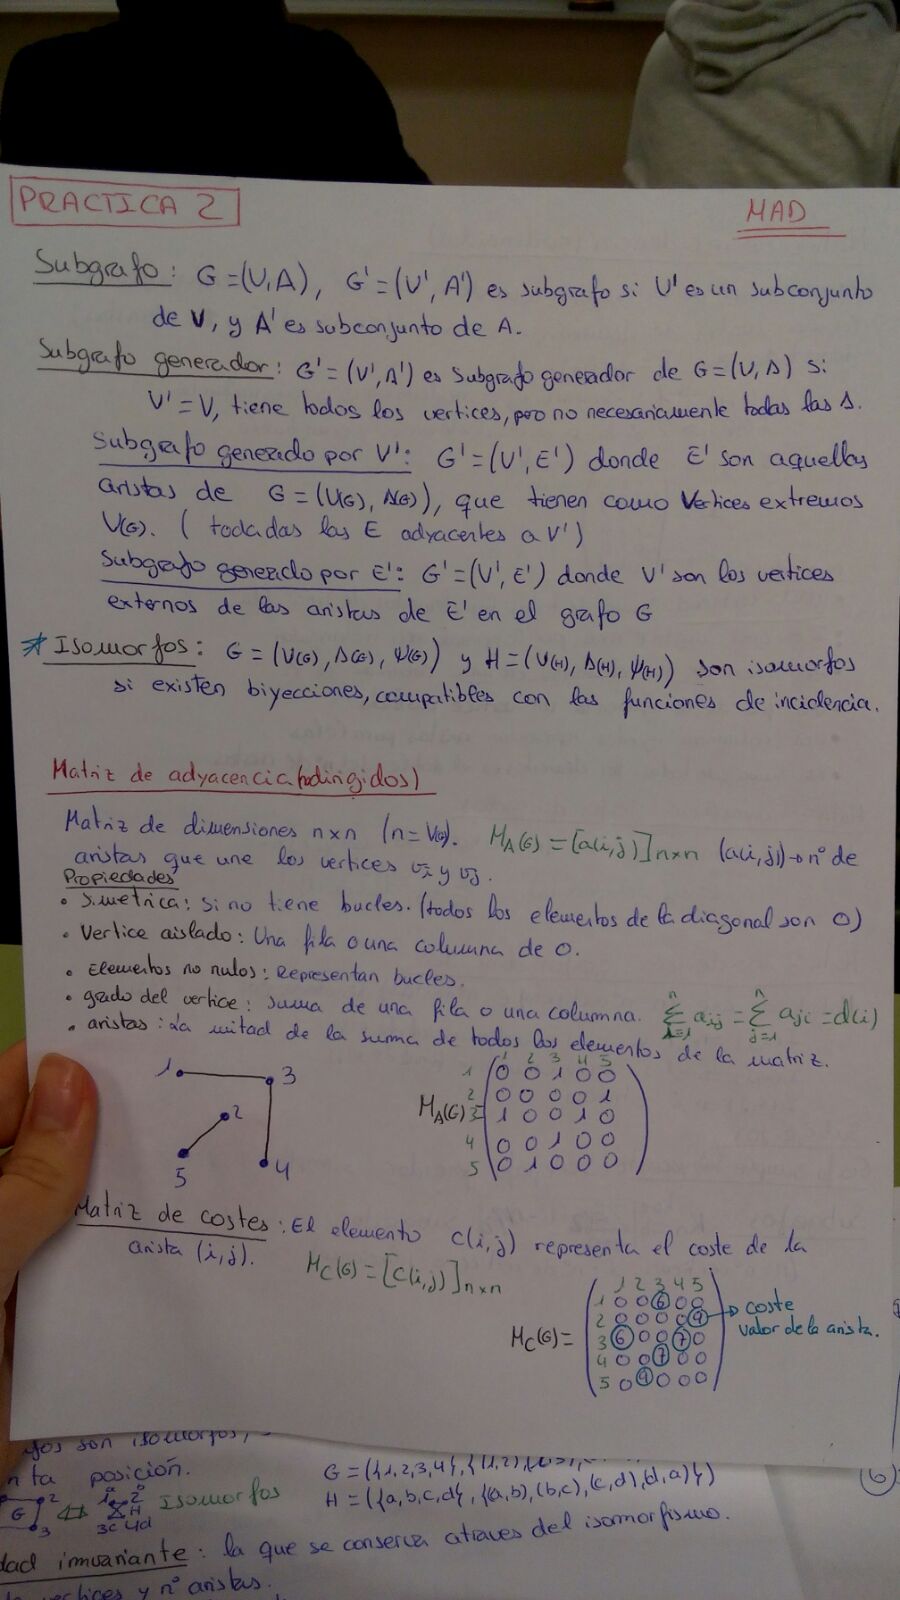 PRACTICA 2
MAD
Subgrafo: G=(V,A), G'=(V',A') es subgrafo si V' es un subconjunto
de V, y A' es subconjunto de A.
Subgrafo generador: G'=(V',A') es subgrafo generador de G=(V,A) si
V'=V, tiene todos los vertices, pero no necesariamente todas las A.
Subgrafo generado por V': G'=(V',E') donde E' son aquellas
aristas de G=(V(G), A(G)), que tienen como vertices extremos
V(G). (todadas las E adyacentes a V')
Subgrafo generado por E': G'=(V',E') donde V' son los vertices
externos de las aristas de E' en el grafo G
* Isomorfos: G=(V(G), A(G), Ψ(G)) y H=(V(H), A(H), Ψ(H)) son isomorfos
si existen biyecciones, compatibles con las funciones de incidencia.
Matriz de adyacencia (dirigidos)
Matriz de dimensiones n×n (n=V(G)). M_A(G)=[a(i,j)]n×n (a(i,j)→nº de
aristas que une los vertices vi y vj.
Propiedades
• Simetrica: Si no tiene bucles. (todos los elementos de la diagonal son 0)
• Vertice aislado: Una fila o una columna de 0.
• Elementos no nulos: Representan bucles.
• grado del vertice: suma de una fila o una columna. Σ aij = Σ aji = d(i)
• aristas: La mitad de la suma de todos los elementos de la matriz.
1 3 2 5 4
1 2 3 4 5
1 0 0 1 0 0
2 0 0 0 0 1
M_A(G)= 3 1 0 0 1 0
4 0 0 1 0 0
5 0 1 0 0 0
Matriz de costes: El elemento c(i,j) representa el coste de la
arista (i,j). M_C(G)=[c(i,j)]n×n
1 2 3 4 5
1 0 0 6 0 0 coste
2 0 0 0 0 9 valor de la arista.
M_C(G)= 3 6 0 0 7 0
4 0 0 7 0 0
5 0 9 0 0 0
son isomorfos,
posición. G=({1,2,3,4},{(1,2)
G 2 3 ⇔ a b H 3c 4d Isomorfos H=({a,b,c,d},{(a,b),(b,c),(c,d),(d,a)})
dad invariante: la que se conserva atraves del isomorfismo.
vertices y nº aristas.
6